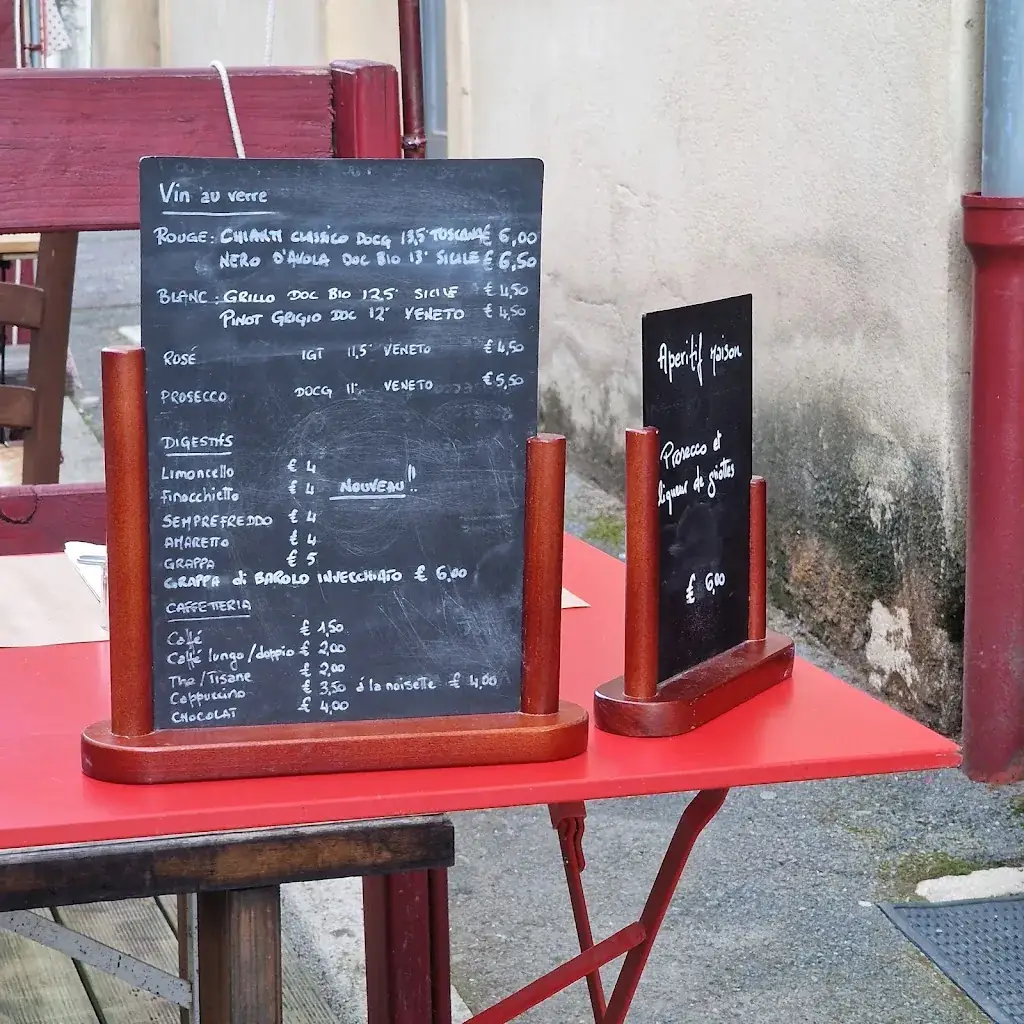 Vin au verre
ROUGE: CHIANTI CLASSICO DOCG 13,5° TOSCANA € 6,00
NERO D'AVOLA DOC BIO 13° SICILE € 6,50
BLANC: GRILLO DOC BIO 12,5° SICILE € 4,50
PINOT GRIGIO DOC 12° VENETO € 4,50
ROSÉ IGT 11,5° VENETO € 4,50
PROSECCO DOCG 11° VENETO € 5,50
DIGESTIFS
Limoncello € 4
Finocchietto € 4 NOUVEAU!!
SEMPREFREDDO € 4
AMARETTO € 4
GRAPPA € 5
GRAPPA di BAROLO INVECCHIATO € 6,00
CAFFETTERIA
Caffé € 1,50
Caffé lungo/doppio € 2,00
The/Tisane € 2,00
Cappuccino € 3,50 à la noisette € 4,00
CHOCOLAT € 4,00
Aperitif Maison
Prosecco et
liqueur de griottes
€ 6,00